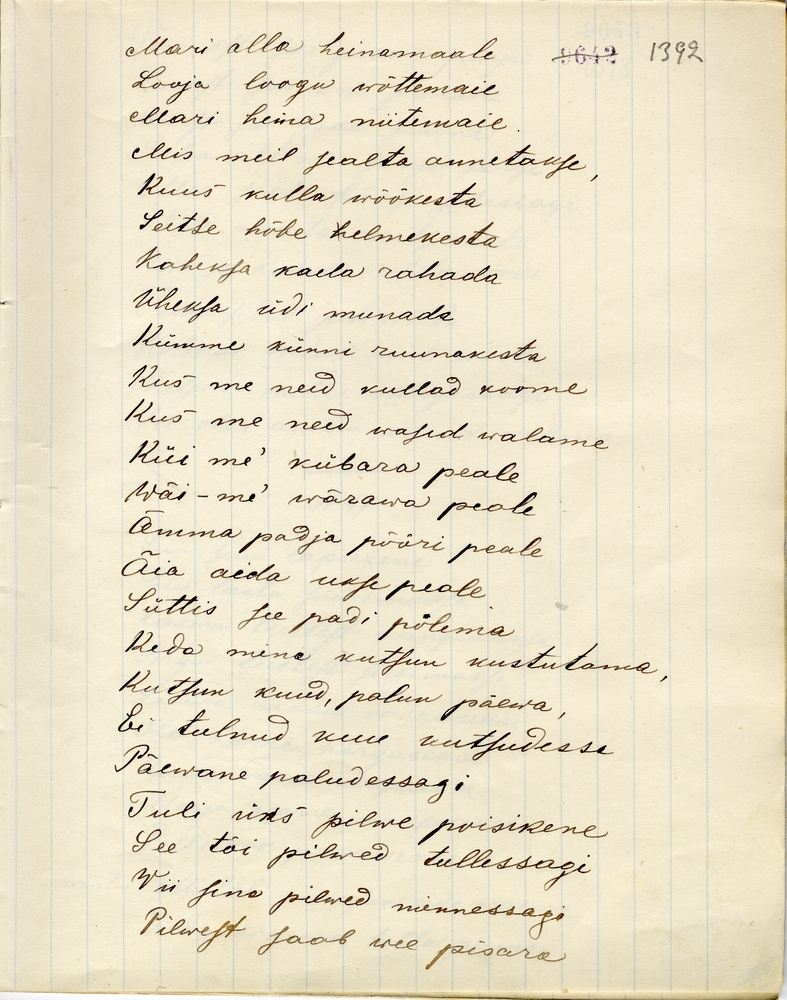 Mari alla heinamaale 8642 1392
Looja loogu wõttemaie
Mari heina niitemaie.
Mis meil sealta annetakse,
Kuus kulla wöökesta
Seitse hõbe helmekesta
Kaheksa kaela rahada
Üheksa üdi munada
Kümme künni ruunakesta
Kus me need kullad koome
Kus me need wased walame
Küi me' kübara peale
Wäi-me' wärawa peale
Ämma padja pööri peale
Äia aida ukse peale
Süttis see padi põlema
Keda mina kutsun kustutama,
Kutsun kuud, palun päewa,
Ei tulnud kuu kutsudessa
Päewane paludessagi
Tuli üks pilwe poisikene
See tõi pilwed tullessagi
Wii sina pilwed minnessagi
Pilwest saab wee pisara